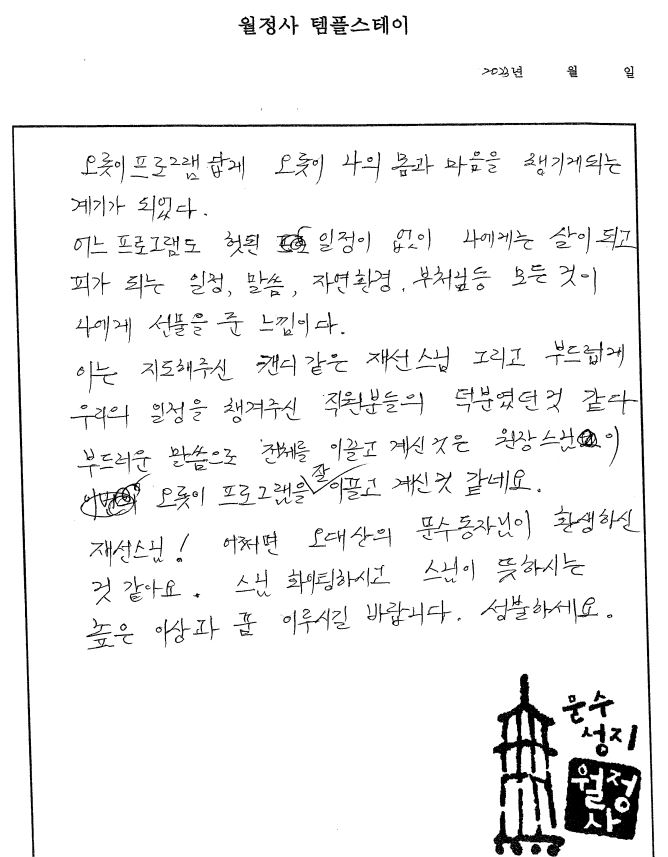 월정사 템플스테이
2023년 월 일
오롯이 프로그램 답게 오롯이 나의 몸과 마음을 챙기게되는
계기가 되었다.
어느 프로그램도 헛된 일정이 없이 나에게는 살이 되고
피가 되는 일정, 말씀, 자연환경, 부처님등 모든 것이
나에게 선물을 준 느낌이다.
이는 지도해주신 캔디같은 재선스님 그리고 부드럽게
우리의 일정을 챙겨주신 직원분들의 덕분였던것 같다
부드러운 말씀으로 전체를 이끌고 계신것은 원장스님이
오롯이 프로그램을 잘 이끌고 계신것 같네요.
재선스님! 어쩌면 오대산의 문수동자님이 환생하신
것 같아요. 스님 화이팅하시고 스님이 뜻하시는
높은 이상과 꿈 이루시길 바랍니다. 성불하세요.
문수
성지
월정
사